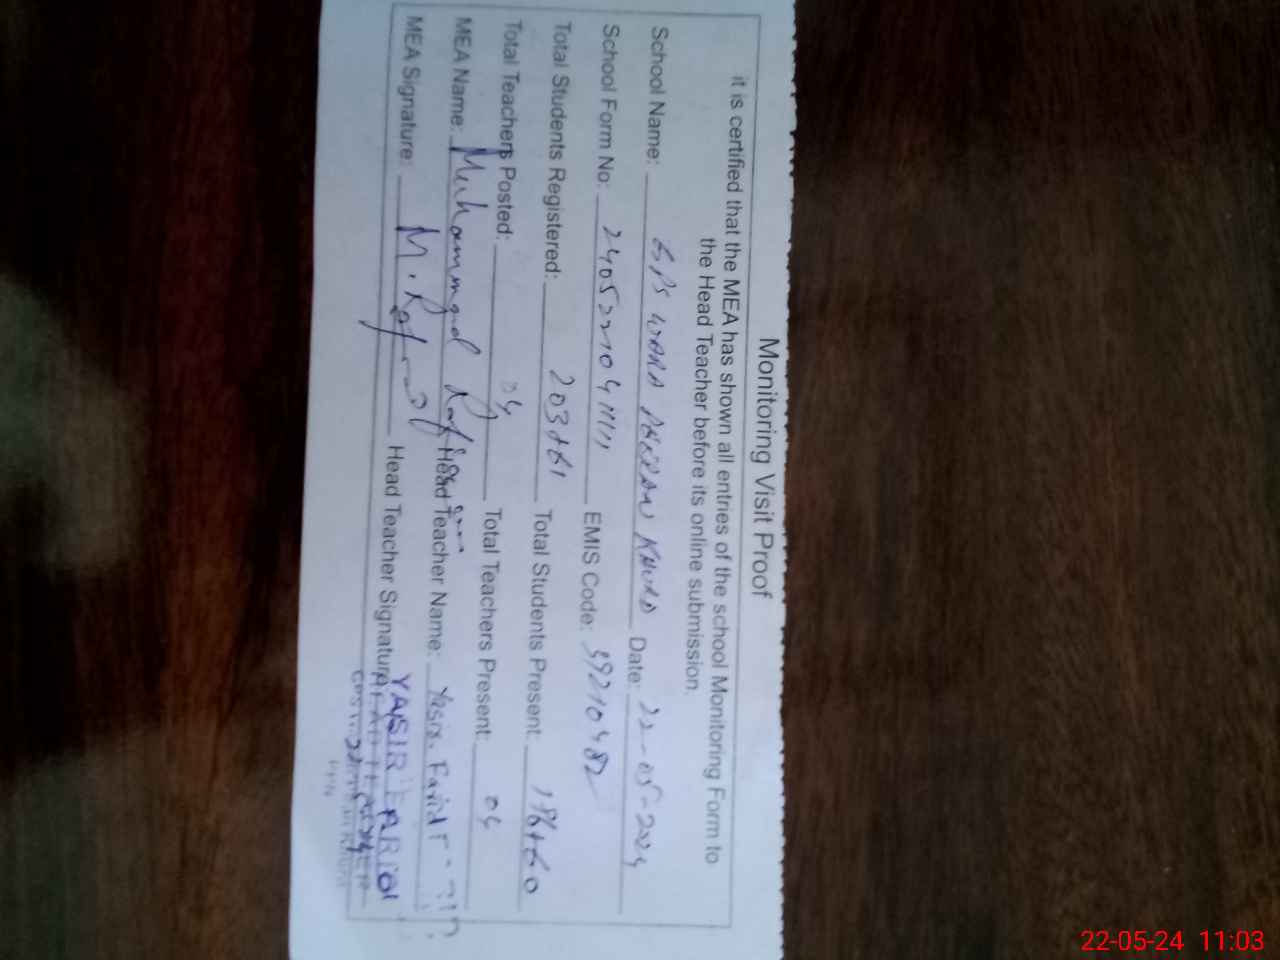 Monitoring Visit Proof
it is certified that the MEA has shown all entries of the school Monitoring Form to
the Head Teacher before its online submission.
School Name: GPS WARA KHURD Date: 22-05-2024
School Form No: EMIS Code: 39210482
Total Students Registered: 203+61 Total Students Present: 186+60
Total Teachers Posted: 04 Total Teachers Present: 04
MEA Name: Muhammad Head Teacher Name: Yasir Farid
MEA Signature: M. Head Teacher Signature
YASIR FARID
22-05-24 11:03